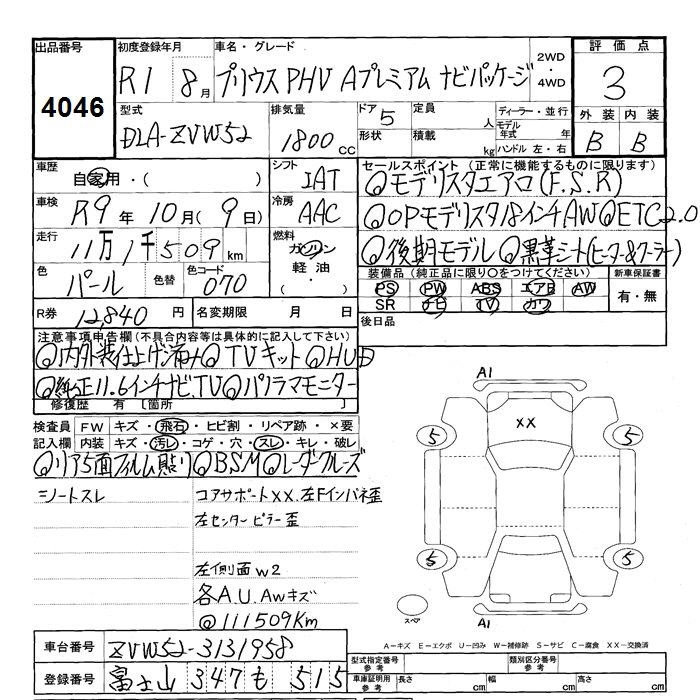 出品番号 4046
初度登録年月 R1 8月
車名・グレード プリウスPHV Aプレミアム ナビパッケージ
2WD・4WD
評価点 3
型式 DLA-ZVW52
排気量 1800cc
ドア 5 定員 人
形状 積載 kg
ディーラー・並行
モデル年式 年式
ハンドル 左・右
外装 内装
B B
車歴 自家用・( )
シフト IAT
セールスポイント (正常に機能するものに限ります)
◎モデリスタエアロ(F.S.R)
車検 R9年10月(9日)
冷房 AAC
◎OPモデリスタ18インチAW◎ETC2.0
走行 11万1千509km
燃料 ガソリン 軽油・( ・ )
◎後期モデル◎黒革シート(ヒーター&クーラー)
色 パール 色替 色コード 070
装備品 (純正品に限り○をつけてください) 新車保証書
PS PW ABS エアB AW
SR ナビ TV カワ
有・無
R券 12,840円 名変期限 月 日
後日品
注意事項申告欄(不具合内容等は具体的に記入して下さい)
◎内外装仕上げ済み◎TVキット◎HUD
◎純正11.6インチナビ.TV◎パノラマモニター
修復歴 有 [箇所 ]
検査員 FW キズ・飛石・ヒビ割・リペア跡・×要
記入欄 内装 キズ・汚レ・コゲ・穴・スレ・キレ・破レ
◎リア5面フィルム貼り◎BSM◎レーダークルーズ
シートスレ
コアサポートXX.左Fインパネ歪
左センターピラー歪
左側面W2
各A.U.Awキズ
@111509Km
A1
XX
5 5
5 5
スペア
A1
A-キズ E-エクボ U-凹み W-補修跡 S-サビ C-腐食 XX-交換済
車台番号 ZVW52-3131958
型式指定番号 参考 類別区分番号 参考
登録番号 富士山 347 も 515
車庫証明用 参考 長さ cm 幅 cm 高さ cm